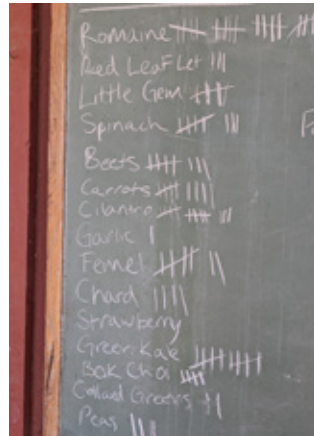 Romaine 卌 卌 卌 卌
Red Leaf Let |||
Little Gem 卌
Spinach 卌 |||
Beets 卌 |||
Carrots 卌 ||||
Cilantro 卌 卌 |||
Garlic |
Fennel 卌 ||
Chard ||||
Strawberry
Green Kale 卌 卌
Bok Choi 卌
Collard Greens ||
Peas ||||